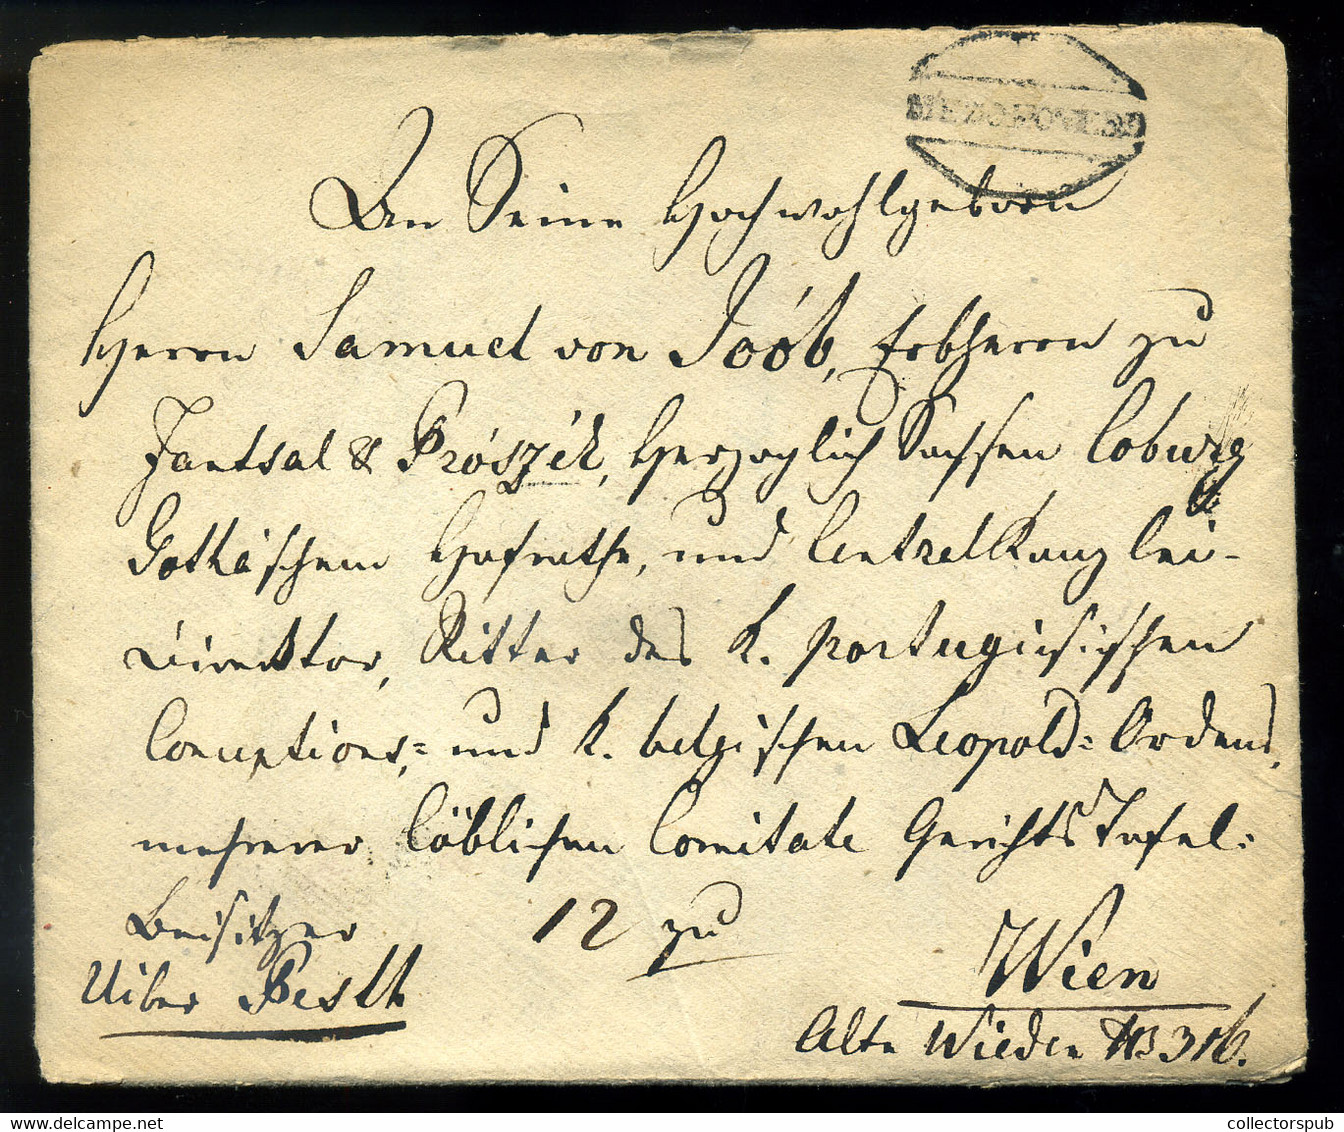 MEZŐKÖVESD
An Seine Hochwohlgeborn
Herrn Samuel von Joób, Erbherrn zu
Jantsal & Prószék, Herzoglich Sachsen Coburg
Gothaischem Hofrathe, und Centralkanzlei-
Direktor, Ritter des K. portugiesischen
Conceptions,= und K. belgischen Leopold= Ordens,
mehrerer löblichen Comitate Gerichts Tafel=
Beisitzer 12 zu
Wien
Uiber Pesth
Alte Wieden № 316.
collectorspub